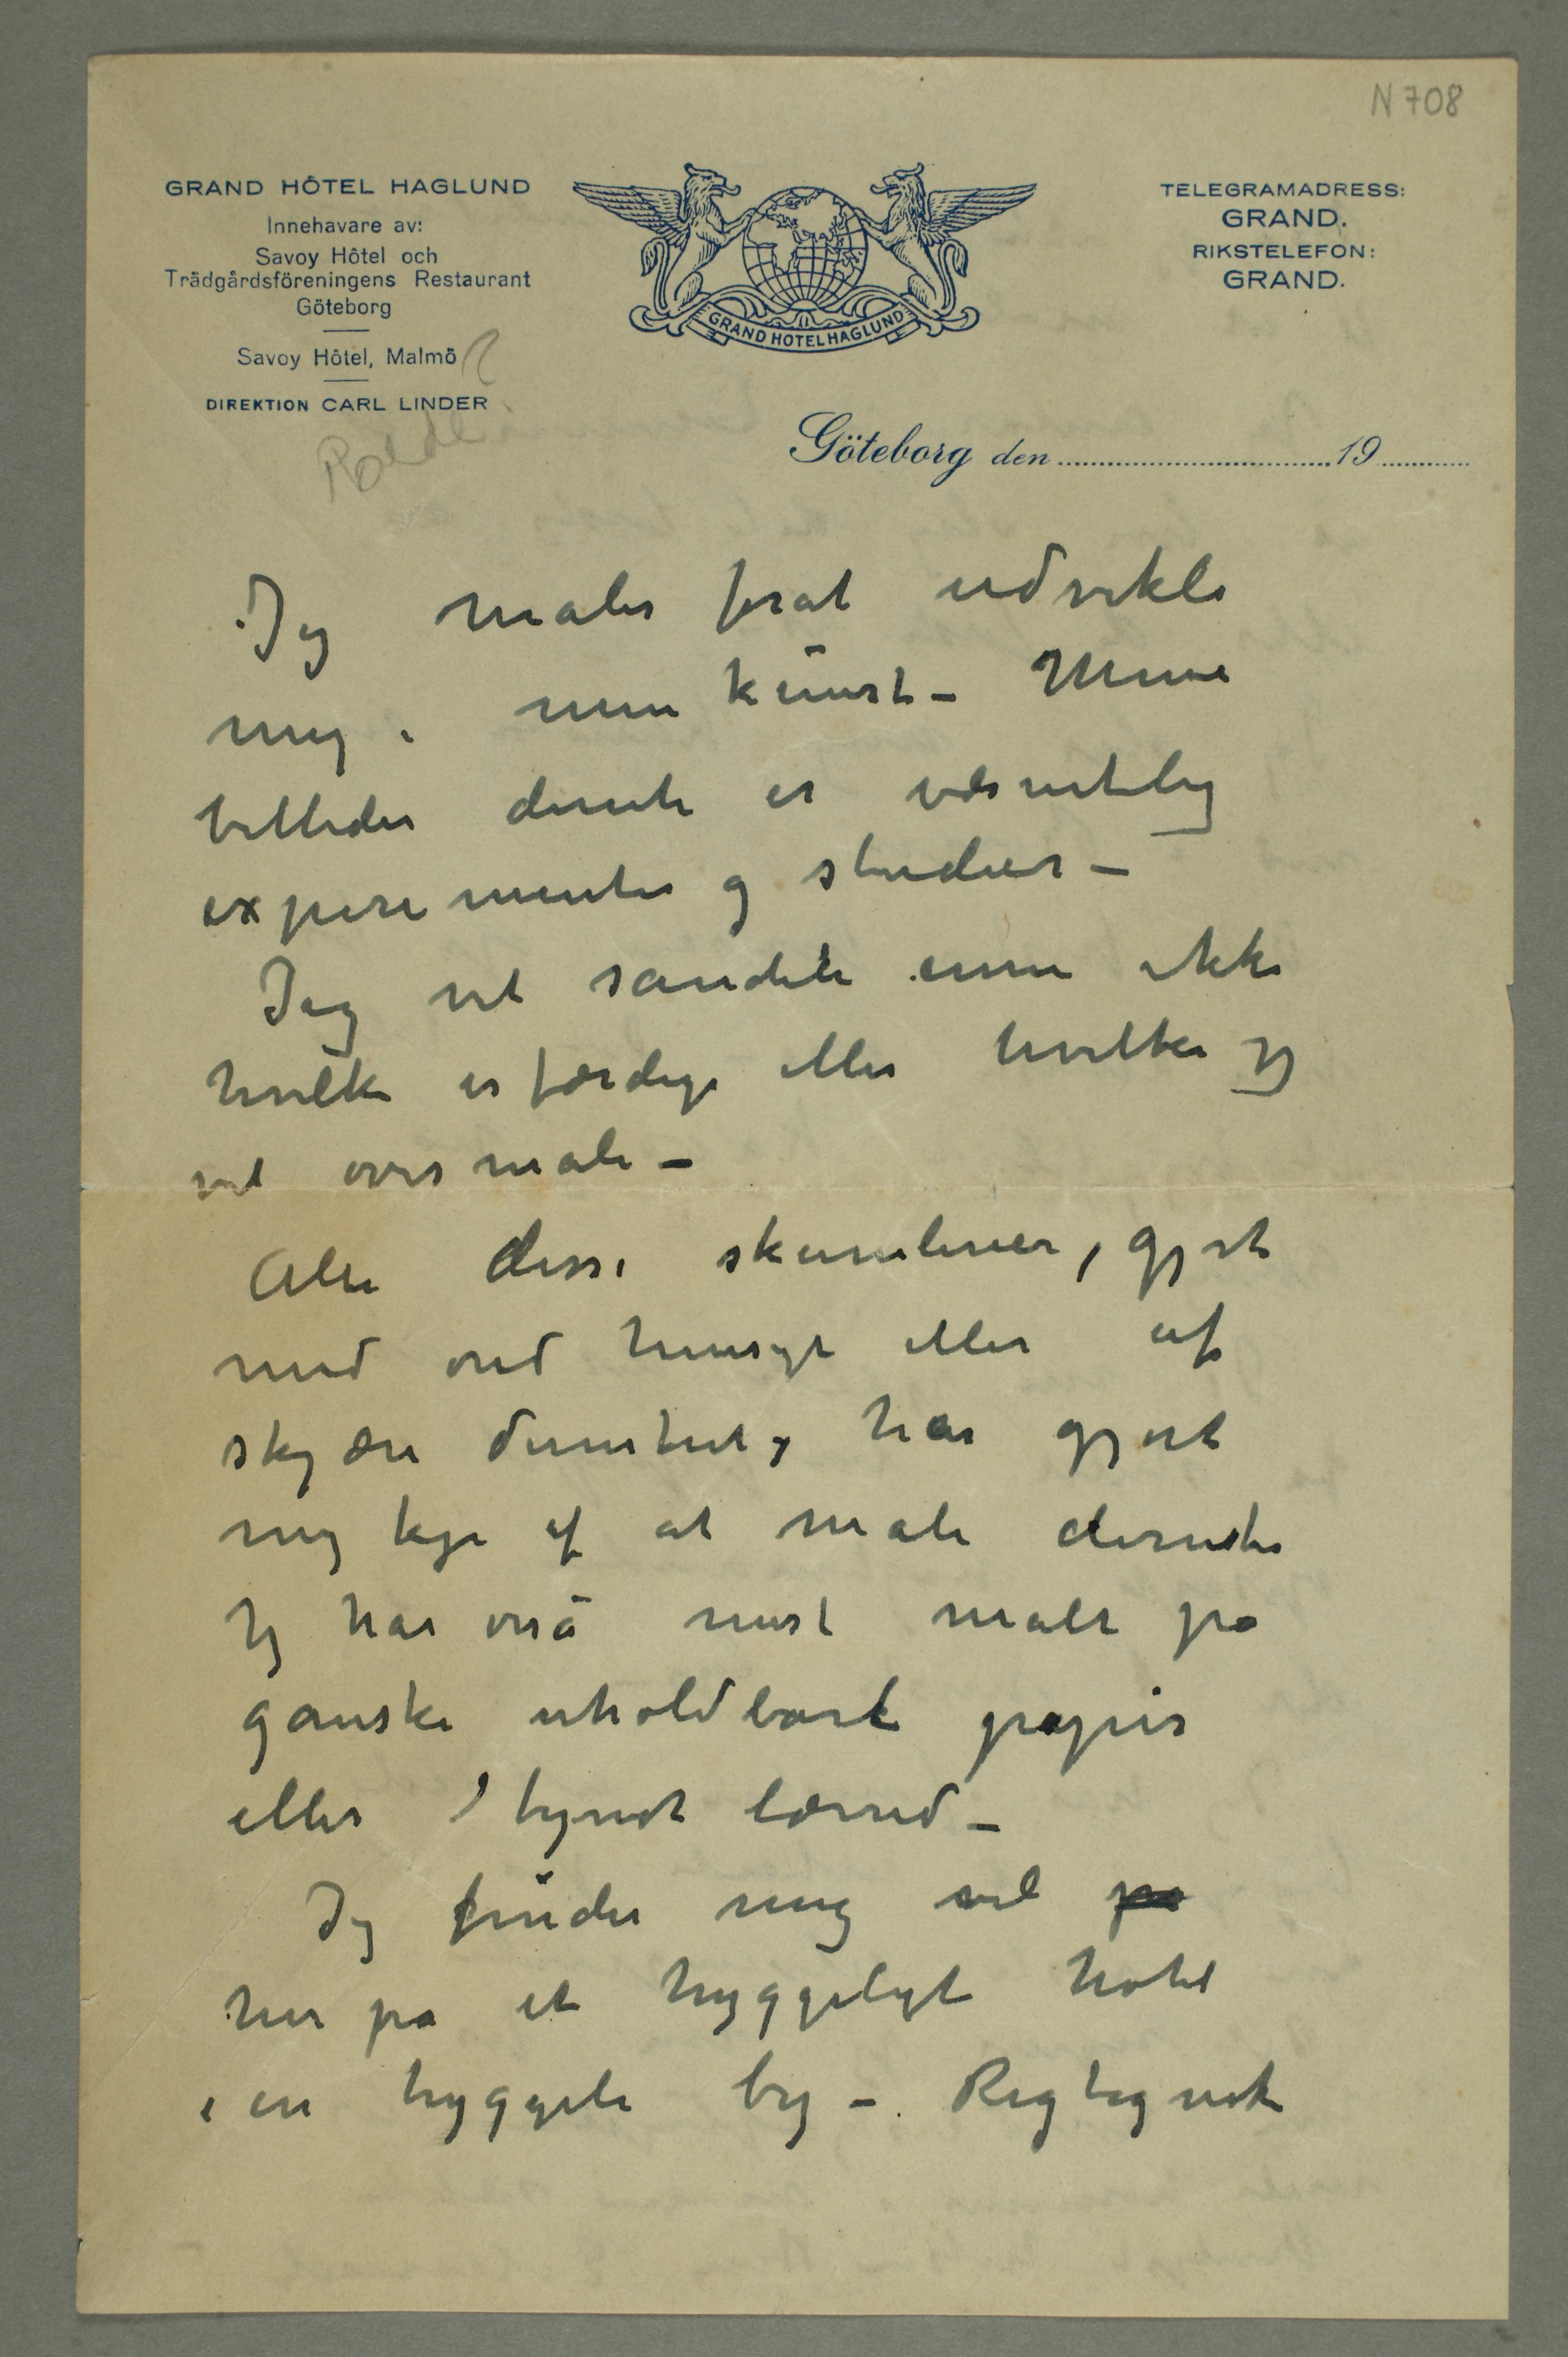 N 708
GRAND HÔTEL HAGLUND
Innehavare av:
Savoy Hôtel och
Trädgårdsföreningens Restaurant
Göteborg
Savoy Hôtel, Malmö
DIREKTION CARL LINDER
GRAND HOTEL HAGLUND
TELEGRAMADRESS:
GRAND.
RIKSTELEFON:
GRAND.
Göteborg den 19
Jeg maler forat udvikle
mig i min kunst – Mine
billeder der er væsentlig
experimenter og studier –
Jeg vet sandeli ennu ikke
hvilke er færdige eller hvilke jeg
vil overmale –
Alle disse skumlerier, gjort
med ond hensigt eller af
skjær dumhet, har gjort
mig kje af at male
Jeg har også mest malt på
ganske uholdbart papir
eller tyndt lærred –
Jeg finder mig vel på
her på et hyggeligt hotel
i en hyggeli by – Rigtignok